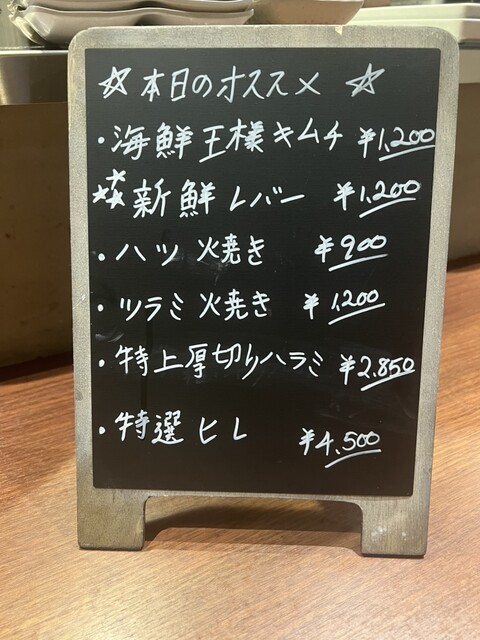 ☆本日のオススメ ☆
・海鮮王様キムチ ¥1,200
新鮮レバー ¥1,200
・ハツ火焼き ¥900
・ツラミ火焼き ¥1,200
・特上厚切りハラミ ¥2.850
・特選ヒレ ¥4,500